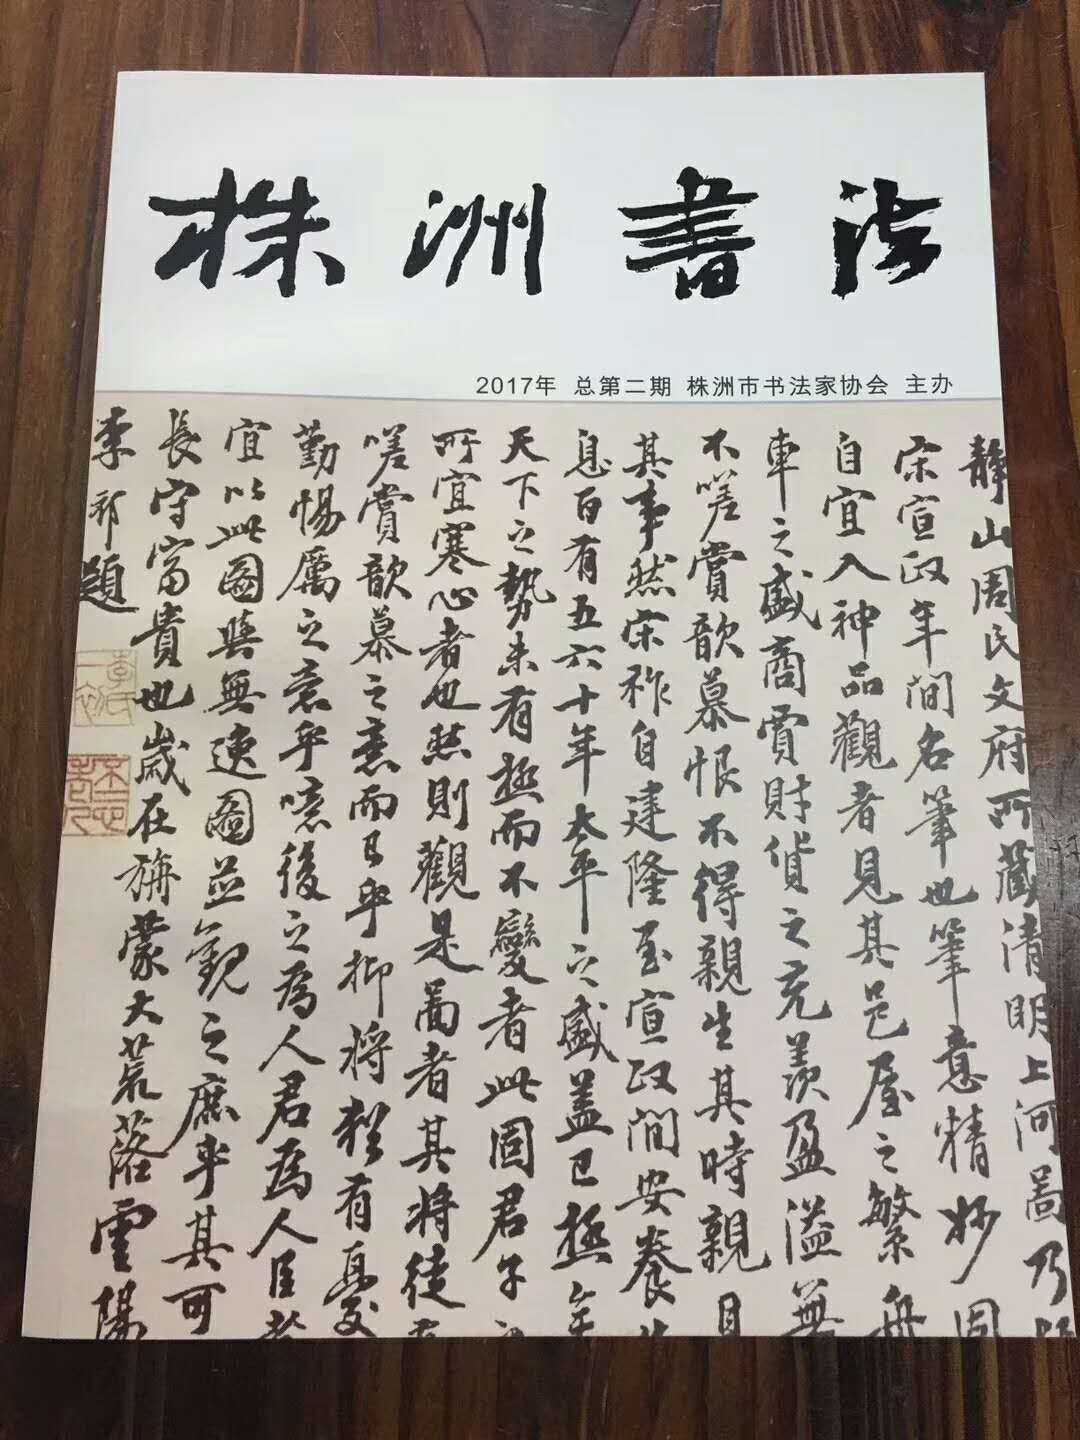 株洲書法
2017年 总第二期 株洲市书法家协会 主办
静山周氏文府所藏清明上河啚乃
宋宣政年間名筆也筆意精妙固
自宜入神品觀者見其邑屋之繁舟
車之盛商賈財貨之充羡盈溢無
不嗟賞歆慕恨不得親生其時親目
其事然宋祚自建隆至宣政間安養
息百有五六十年太平之盛蓋已極矣
天下之勢未有極而不變者此固君子
所宜寒心者也然則觀是啚者其將徒
嗟賞歆慕之意而已乎抑將猶有憂
勤惕厲之意乎噫後之為人君為人臣者
宜以此圖與無逸圖並觀之庶乎其可
長守富貴也歲在旃蒙大荒落雲陽
李祁題